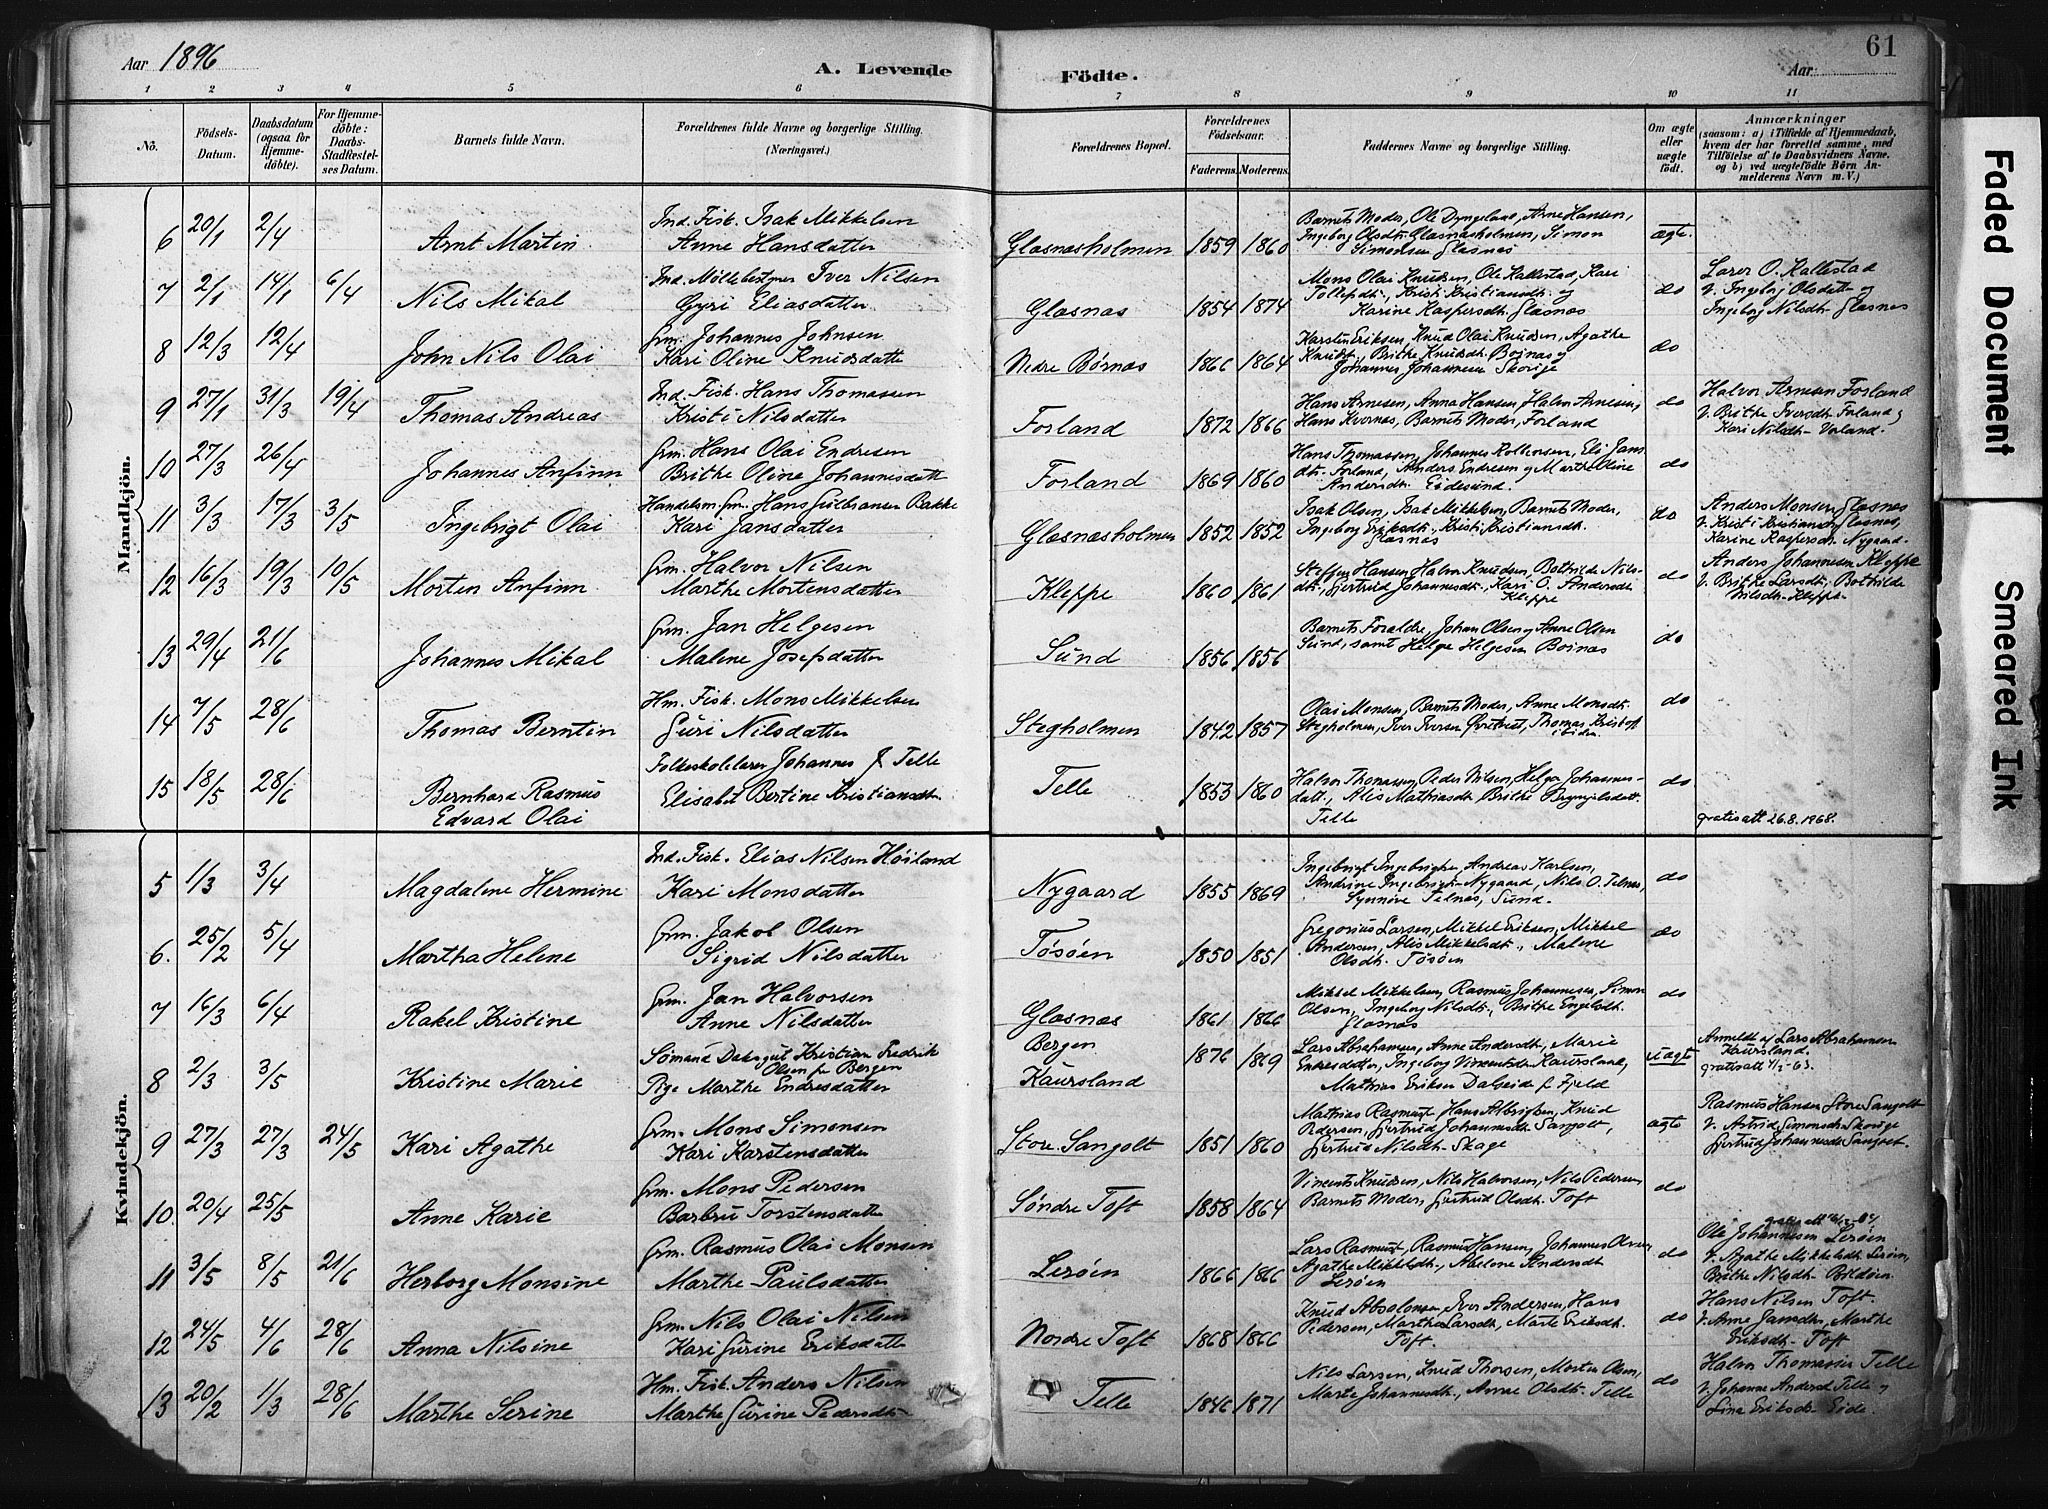 Aar 1896
A. Levende
Födte.
Aar
61
1 2 3 4 5 6 7 8 9 10 11
No.
Födsels-
Datum.
Daabsdatum
(ogsaa for
Hjemme-
döbte).
For Hjemme-
döbte:
Daabs-
Stadfæstel-
ses Datum.
Barnets fulde Navn.
Forældrenes fulde Navne og borgerlige Stilling.
(Næringsvei.)
Forældrenes Bopæl.
Forældrenes
Födselsaar.
Faderens. Moderens.
Faddernes Navne og borgerlige Stilling.
Om ægte
eller
uægte
födt.
Anmærkninger
(saasom: a) i Tilfælde af Hjemmedaab,
hvem der har forrettet samme, med
Tilföielse af to Daabsvidners Navne.
og b) ved uægtefödte Börn An-
melderens Navn m. V.)
Mandkjön.
6 20/1 2/4 Arnt Martin
Ind. Fisk. Isak Mikkelsen
Anne Hansdatter
Glæsnæsholmen 1859 1860
Barnets Moder, Ole Dyngeland, Arne Hansen,
Ingeborg Olsdt. Glæsnæsholmen, Simon
Simonsen Glæsnæs
ægte.
7 2/1 14/1 6/4 Nils Mikal
Ind. Møllebestyrer Iver Nilsen
Gyri Eliasdatter
Glæsnæs 1854 1874
Mons Olai Knudsen, Ole Kallestad, Kari
Tollefsdt., Kristi Kristiansdt. og
Karine Kaspersdt. Glæsnæs
do
Lærer O. Kallestad
V. Ingeborg Olsdatt og
Ingeborg Nilsdt. Glæsnæs
8 12/3 12/4 John Nils Olai
Grm. Johannes Johnsen
Kari Oline Knudsdatter
Nedre Børnæs 1866 1864
Karsten Eriksen, Knud Olai Knudsen, Agathe
Knudsdt., Brithe Knudsdt. Boinæs og
Johannes Johannesen Skorge
do
9 27/1 31/3 19/4 Thomas Andreas
Ind. Fisk. Hans Thomassen
Kristi Nilsdatter
Forland 1872 1866
Hans Arnesen, Anna Hansen, Halvor Arnesen,
Hans Kvernæs, Barnets Moder, Forland
do
Halvor Arnesen Forland
V. Brithe Iversdt. Forland og
Kari Nilsdt. Vorland.
10 27/3 26/4 Johannes Anfinn
Grm. Hans Olai Endresen
Brithe Oline Johannesdatt
Forland 1869 1860
Hans Thomassen, Johannes Kolbensen, Eli Jans
dt. Forland, Anders Endresen og Marthe Oline
Andersdt. Eidesund.
do
11 3/3 17/3 3/5 Ingebrigt Olai
Handelsm. Grm. Hans Gulbransen Bakke
Kari Jansdatter
Glæsnæsholmen 1852 1852
Isak Olsen, Isak Mikkelsen, Barnets Moder,
Ingeborg Eriksdt., Kristi Kristiansdt.
Glæsnæs
do
Anders Monsen Glæsnæs
V. Kristi Kristiansen Glæsnæs,
Karine Kaspersdt. Nygaard.
12 16/3 19/3 10/5 Morten Anfinn
Grm. Halvor Nilsen
Marthe Mortensdatter
Kleppe 1860 1861
Steffen Hansen, Halvor Knudsen, Bothilde Nils-
dt., Gjertrud Johannesdt., Kari O. Andersdt.
Kleppe
do
Anders Johannesen Kleppe
V. Brithe Larsdt., Bothilde
Nilsdt. Kleppe.
13 29/4 21/6 Johannes Mikal
Grm. Jan Helgesen
Malene Josefsdatter
Sund 1856 1856
Barnets Forældre, Johan Olsen og Anne Olsen
Sund, samt Helge Helgesen Boinæs
do
14 7/5 28/6 Thomas Berntin
Hm. Fisk. Mons Mikkelsen
Guri Nilsdatter
Stegholmen 1842 1857
Olai Monsen, Barnets Moder, Anne Monsdt.
Stegholmen, Iver Iversen, Thomas
do
15 18/5 28/6 Bernhard Rasmus
Edvard Olai
Folkeskolelærer Johannes J. Telle
Elisabet Bertine Kristiansdt.
Telle 1853 1860
Halvor Thomasen, Peder Nilsen, Helga Johannes-
datt., Alis Mathiasdt., Brithe Bryngelsdatt.
Telle
do
gratisatt 26.8.1968.
Kvindekjön.
5 1/3 3/4 Magdalene Hermine
Ind. Fisk. Elias Nilsen Høiland
Kari Monsdatter
Nygaard 1855 1869
Ingebrigt Ingebrigtsen, Andreas Karlsen,
Andrine Ingebrigtsdt. Nygaard, Nils O. Telnæs,
Synnøve Telnæs, Sund.
do
6. 25/2 5/4 Martha Helene
Grm. Jakob Olsen
Sigrid Nilsdatter
Tøsøen 1850 1851
Gregorius Larsen, Mikkel Eriksen, Mikkel
Andersen, Alis Mikkelsdt., Malene
Olsdt. Tøsøen
do
7 16/3 6/4 Rakel Kristine
Grm. Jan Halvorsen
Anne Nilsdatter
Glæsnæs 1861 1866
Mikkel Mikkelsen, Rasmus Johannesen, Simon
Olsen, Ingeborg Nilsdt., Brithe Engelsdt.
Glæsnæs
do
8 2/3 3/5 Kristine Marie
Sømand Kristian Fredrik
Olsen fr Bergen
Pige Marthe Endresdatter
Bergen
Kausland 1876 1869
Lars Abrahamsen, Anne Andersdt., Marie
Endresdatter, Ingeborg Vincentsdt. Kausland,
Mathias Eriksen Dalseide fr Fjeld
uægte
Anmeldt af Lars Abrahamsen
Kausland.
gratisatt 1/2-63.
9 27/3 27/3 24/5 Kari Agathe
Grm. Mons Simonsen
Kari Karstensdatter
Store Sangolt 1851 1860
Mathias Rasmus, Hans Albrigtsen, Knud
Pedersen, Gjertrud Johannesdt. Sangolt,
Gjertrud Nilsdt. Skage
ægte
Rasmus Hansen Store Sangolt
V. Astrid Simonsdt. Skorge
Gjertrud Johannesdt. Sangolt.
10. 20/4 25/5 Anne Karie
Grm. Mons Pedersen
Barbru Torstensdatter
Søndre Toft 1858 1864
Vincents Knudsen, Nils Halvorsen, Nils Pedersen
Barnets Moder, Gjertrud Olsdt. Toft
do
11 3/5 8/5 21/6 Herborg Monsine
Grm. Rasmus Olai Monsen
Marthe Paulsdatter
Lerøen 1866 1866
Lars Rasmus, Rasmus Hansen, Johannes Olsen,
Agathe Mikkelsdt., Malene Andersdt
Lerøen
do
Ole Johannesen Lerøen
V. Agathe Mikkelsdt Lerøen,
Brithe Nilsdt. Bildøen
12 24/5 4/6 28/6 Anna Nilsine
Grm. Nils Olai Nilsen
Kari Gurine Eriksdatter
Nordre Toft 1868 1866
Knud Absalonsen, Iver Andersen, Hans
Pedersen, Martha Larsdt., Marte Eriksdt.
Toft.
do
Hans Nilsen Toft.
V. Anne Jansdt., Marthe
Eriksdt. Toft
13 20/2 1/3 28/6 Marthe Serine
Hm. Fisk. Anders Nilsen
Marthe Gurine Pedersdt.
Telle 1846 1871
Nils Larsen, Knud Thorsen, Morten Olsen,
Marte Johannesdt., Anne Olsdt. Telle
do
Halvor Thomassen Telle
V. Johanne Andersd Telle og
Lina Eriksdt. Eide.
Faded Document
Smeared Ink